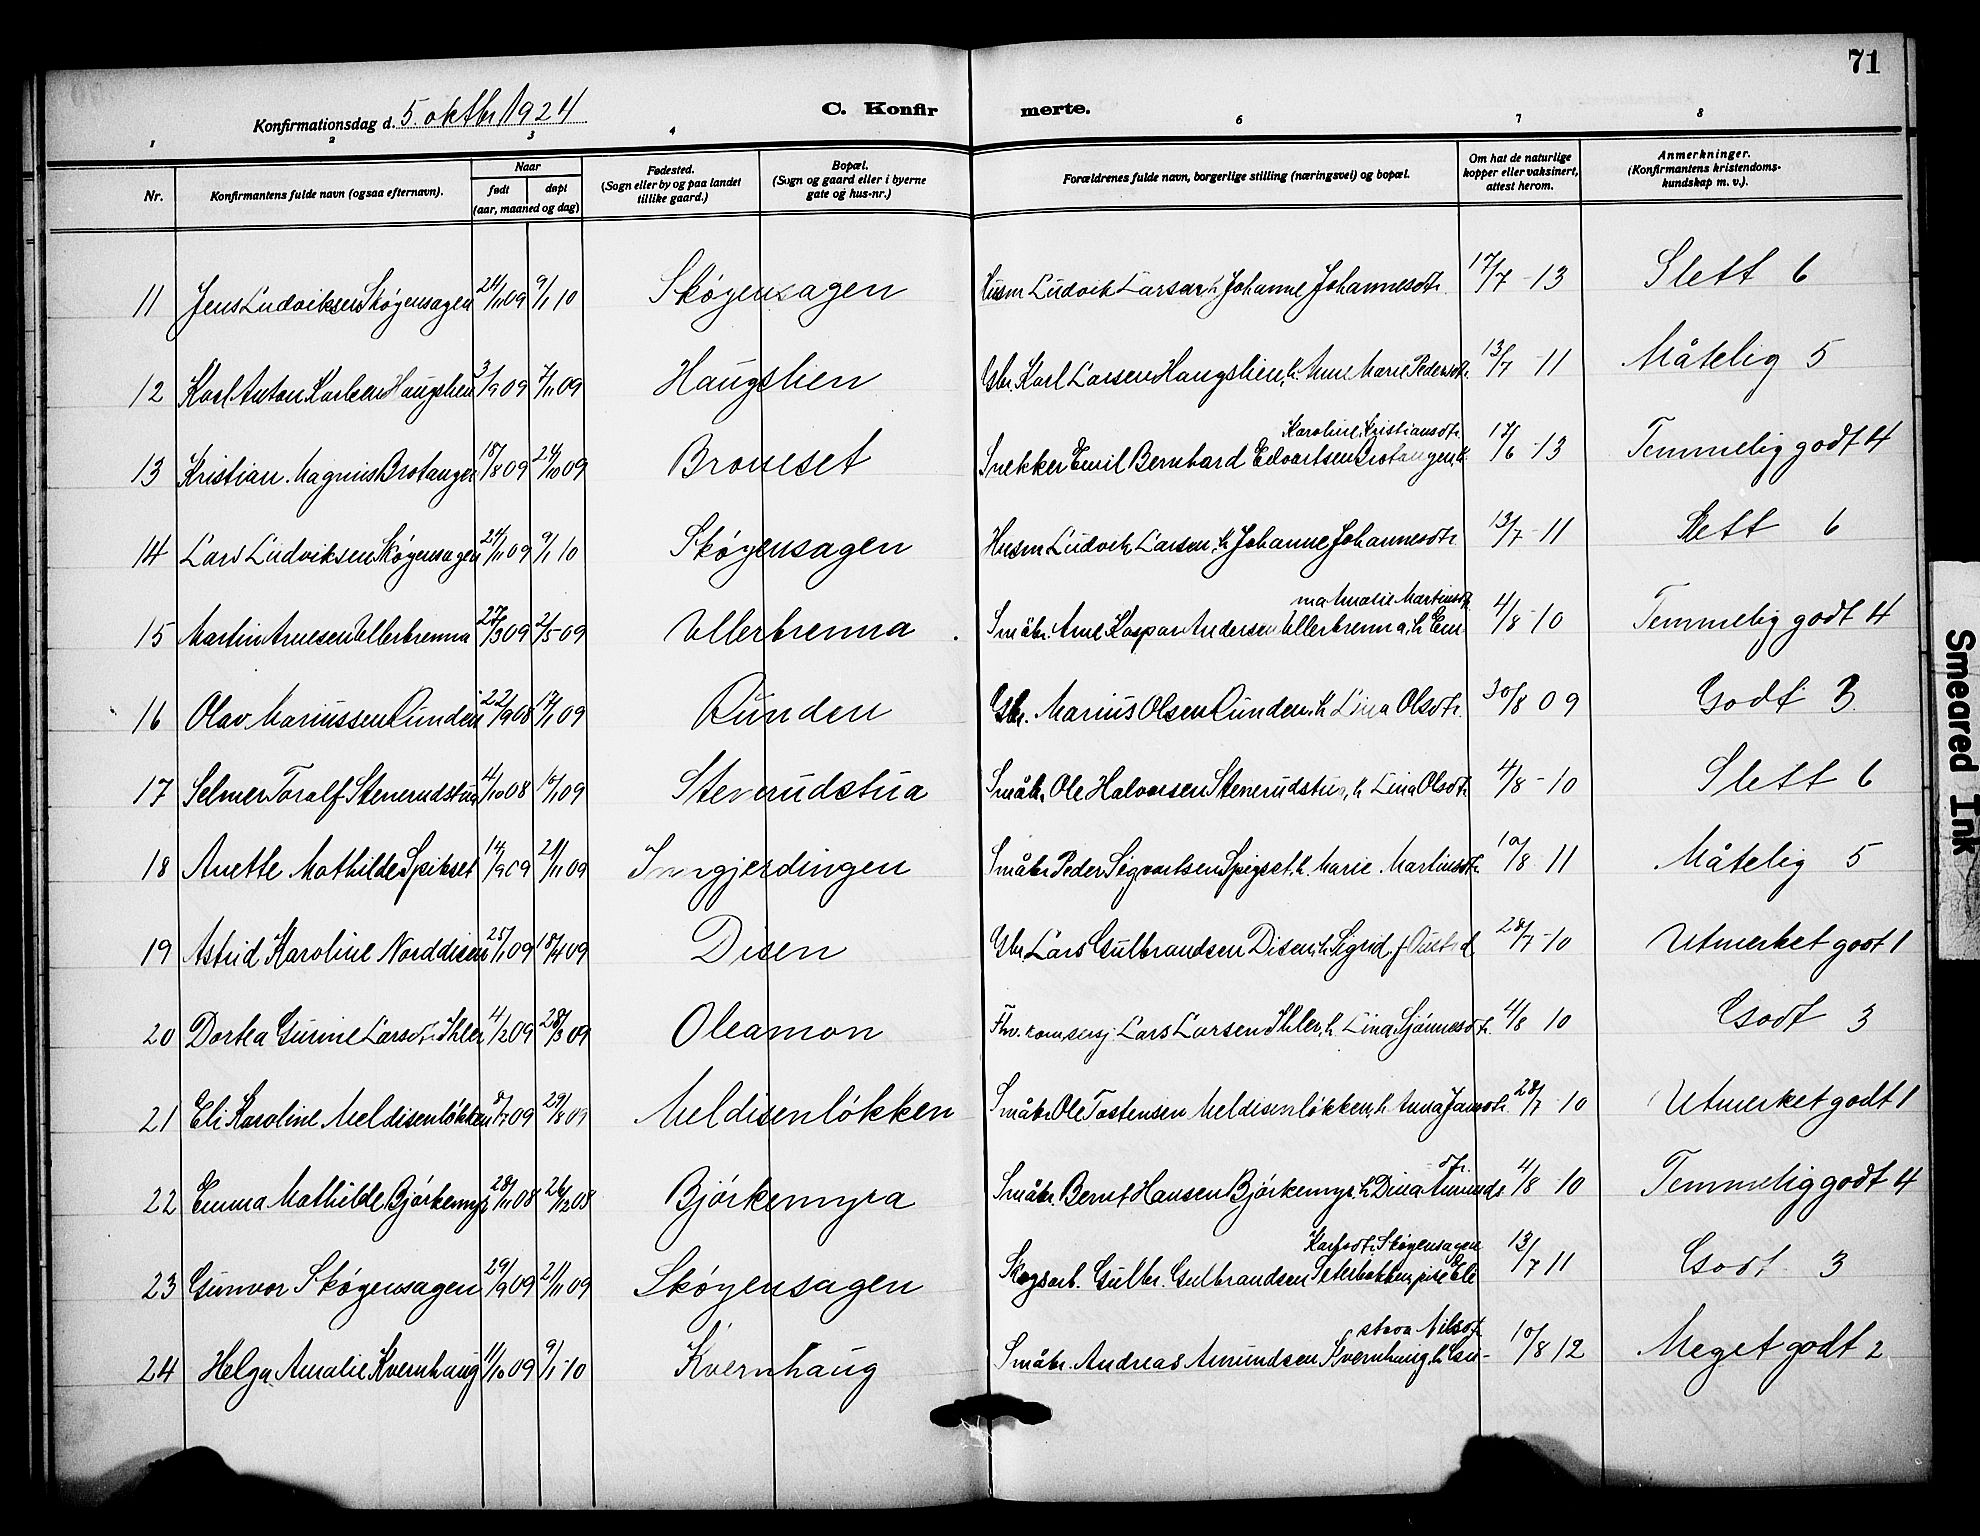 71
Konfirmationsdag d. 5. oktbr 1924
C. Konfir merte.
1 2 3 4 6 7 8
Nr. Konfirmantens fulde navn (ogsaa efternavn). Naar født døpt (aar, maaned og dag) Fødested. (Sogn eller by og paa landet tillike gaard.) Bopæl. (Sogn og gaard eller i byerne gate og hus-nr.) Forældrenes fulde navn, borgerlige stilling (næringsvei) og bopæl. Om hat de naturlige kopper eller vaksinert, attest herom. Anmerkninger. (Konfirmantens kristendomskundskap m. v.).
11 Jens Ludviksen Skøyensagen 24/11 09 9/1 10 Skøyensagen Husm Ludvik Larsen, h. Johanne Johannesdtr. 17/7 - 13 Slett 6
12 Karl Anton Karlsen Haugslien 3/9 09 7/11 09 Haugslien Gbr. Karl Larsen Haugslien, h. Anne Marie Pedersdtr. 13/7 11 Måtelig 5
Karoline Kristiansdtr.
13 Kristian Magnus Brotangen 18/8 09 24/10 09 Broneset Snekker Emil Bernhard Edvartsen Brotangen, h. 17/6 - 13 Temmelig godt 4
14 Lars Ludviksen Skøyensagen 24/11 09 9/1 10 Skøyensagen Husm Ludvik Larsen, h. Johanne Johannesdtr. 13/7 - 11 Slett 6
ma Amalie Martinsdtr.
15 Martin Arnesen Ullerbrenna 27/3 09 2/5 - 09 Ullerbrenna Småbr. Arne Kaspar Andersen Ullerbrenna, h. Em- 4/8 - 10 Temmelig godt 4
16 Olav Mariussen Runden 22/9 08 17/1 09 Runden Gbr. Marius Olsen Runden, h. Lina Olsdtr. 30/8 09 Godt 3
17 Selmer Toralf Stenerudstua 4/10 08 10/1 09 Stenerudstua Småbr. Ole Halvorsen Stenerudstua, h. Lina Olsdtr. 4/8 - 10 Slett 6
18 Anette Mathilde Spikset 14/9 09 21/11 09 Inngjerdingen Småbr Peder Sigvartsen Spigset, h. Marie Martinsdtr. 10/8 - 11 Måtelig 5
19 Astrid Karoline Norddisen 25/1 09 18/4 09 Disen Gbr. Lars Gulbrandsen Disen, h. Sigrid f. 28/7 - 10 Utmerket godt 1
20 Dortea Gunine Larsdtr. Ihler 4/2 09 28/3 09 Oleamon Lars Larsen Ihler, h. Lina 4/8 10 Godt 3
21 Eli Karoline Meldisenløkken 8/7 09 29/8 09 Meldisenløkken Småbr. Ole Tostensen Meldisenløkken, h. Anna Jansdtr. 28/7 - 10 Utmerket godt 1
dtr.
22 Emma Mathilde Bjørkemyr 28/11 08 26/12 08 Bjørkemyra Småbr. Bernt Hansen Bjørkemyr, h. Dina Amunds 4/8 10 Temmelig godt 4
Karlsdtr. Skøyensagen
23 Gunvor Skøyensagen 29/9 09 21/11 09 Skøyensagen Skogsarb. Gulbr. Gulbrandsen Seterbakken, pike Eli 13/7 11 Godt 3
stava Nilsdtr.
24 Helga Amalie Kvernhaug 11/10 09 9/1 - 10 Kvernhaug Småbr. Andreas Amundsen Kvernhaug, h. Gu- 10/8 12 Meget godt 2
Smeared Ink